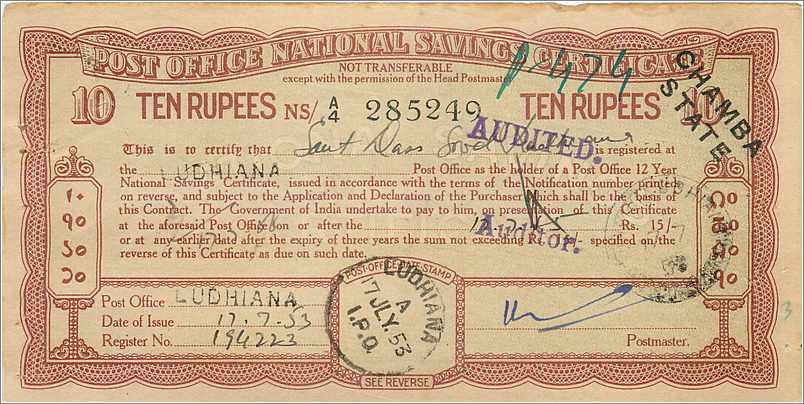 POST OFFICE NATIONAL SAVINGS CERTIFICATE
NOT TRANSFERABLE
except with the permission of the Head Postmaster
10 TEN RUPEES NS/ A/4 285249 TEN RUPEES 10
1474
CHAMBA STATE
AUDITED.
This is to certify that Sant Dass Sood is registered at
the LUDHIANA Post Office as the holder of a Post Office 12 Year
National Savings Certificate, issued in accordance with the terms of the Notification number printed
on reverse, and subject to the Application and Declaration of the Purchaser which shall be the basis of
this Contract. The Government of India undertake to pay to him, on presentation of this Certificate
at the aforesaid Post Office on or after the Rs. 15/-
or at any earlier date after the expiry of three years the sum not exceeding Rs. 15/- specified on/the
reverse of this Certificate as due on such date.
Auditor.
۱۰
१०
੧੦
Post Office LUDHIANA
Date of Issue 17.7.53
Register No. 194223
POST-OFFICE DATE-STAMP
LUDHIANA
A
17 JLY. 53
I.P.O.
SEE REVERSE
Postmaster.